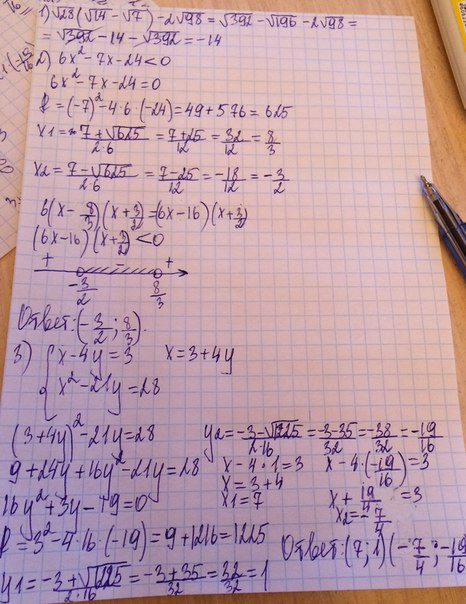 1) √28(√14 - √7) - 2√98 = √392 - √196 - 2√98 =
= √392 - 14 - √392 = -14
2) 6x² - 7x - 24 < 0
6x² - 7x - 24 = 0
D = (-7)² - 4·6·(-24) = 49 + 576 = 625
x1 = 7 + √625 / 2·6 = 7+25 / 12 = 32/12 = 8/3
x2 = 7 - √625 / 2·6 = 7-25 / 12 = -18/12 = -3/2
6(x - 8/3)(x + 3/2) = (6x - 16)(x + 3/2)
(6x - 16)(x + 3/2) < 0
+ - +
-3/2 8/3
Ответ: (-3/2; 8/3).
3) { x - 4y = 3 x = 3 + 4y
x² - 21y = 28
(3 + 4y)² - 21y = 28
9 + 24y + 16y² - 21y = 28
16y² + 3y - 19 = 0
D = 3² - 4·16·(-19) = 9 + 1216 = 1225
y1 = -3 + √1225 / 2·16 = -3 + 35 / 32 = 32/32 = 1
y2 = -3 - √1225 / 2·16 = -3-35 / 32 = -38/32 = -19/16
x - 4·1 = 3
x = 3 + 4
x1 = 7
x - 4·(-19/16) = 3
x + 19/4 = 3
x2 = -7/4
Ответ: (7; 1) (-7/4; -19/16